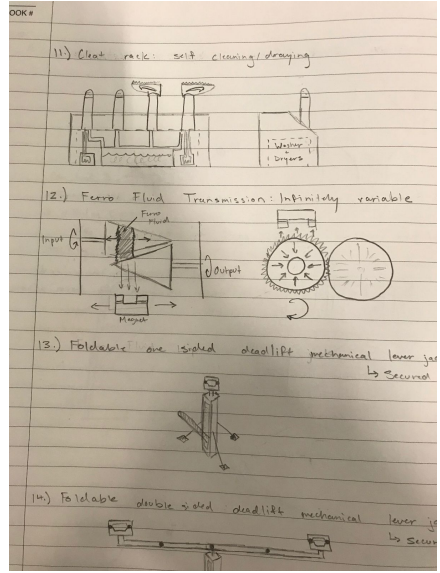 OOK #
11.) Cleat rack: self cleaning/drying
Washer
+
Dryers
12.) Ferro Fluid Transmission: Infinitely variable
Ferro
Fluid
Input
Output
Magnet
13.) Foldable one sided deadlift mechanical lever jac
↳ Secured
14.) Foldable double sided deadlift mechanical lever ja
↳ Secur